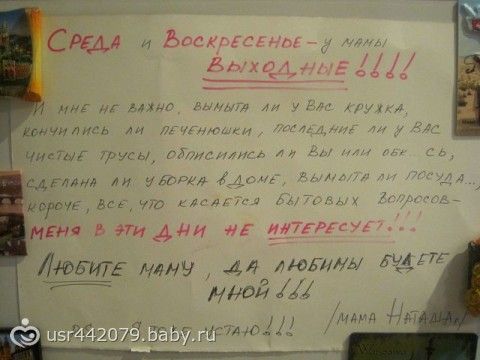 СРЕДА и ВОСКРЕСЕНЬЕ – у МАМЫ
ВЫХОДНЫЕ!!!!
И МНЕ НЕ ВАЖНО, ВЫМЫТА ЛИ У ВАС КРУЖКА,
КОНЧИЛИСЬ ЛИ ПЕЧЕНЮШКИ, ПОСЛЕДНИЕ ЛИ У ВАС
ЧИСТЫЕ ТРУСЫ, ОБПИСИЛИСЬ ЛИ ВЫ ИЛИ ОБК...СЬ,
СДЕЛАНА ЛИ УБОРКА В ДОМЕ, ВЫМЫТА ЛИ ПОСУДА...,
КОРОЧЕ, ВСЕ, ЧТО КАСАЕТСЯ БЫТОВЫХ ВОПРОСОВ–
МЕНЯ В ЭТИ ДНИ НЕ ИНТЕРЕСУЕТ!!!
ЛЮБИТЕ МАМУ, ДА ЛЮБИМЫ БУДЕТЕ
МНОЙ!!!
/МАМА НАТАША/
УСТАЮ!!!
usr442079.baby.ru